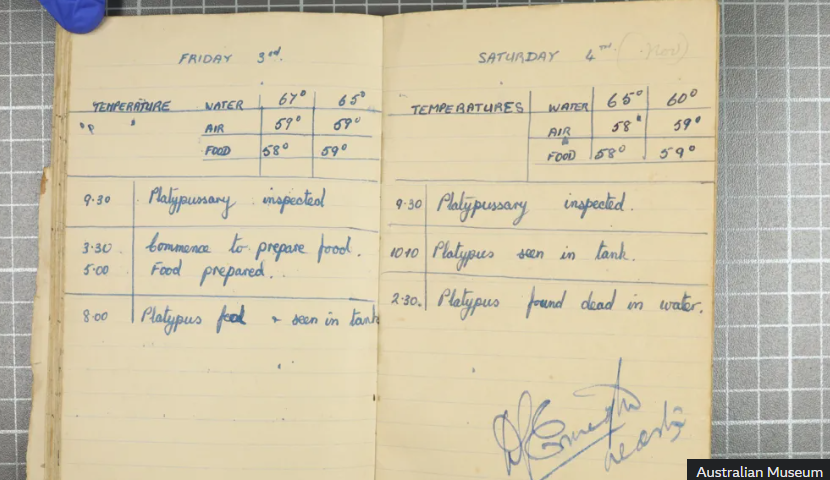 FRIDAY 3rd.
TEMPERATURE WATER 67° 65°
"P " AIR 59° 59°
FOOD 58° 59°
9.30 Platypussary inspected
3.30 Commence to prepare food.
5.00 Food prepared.
8.00 Platypus fed & seen in tank
SATURDAY 4TH (Nov)
TEMPERATURES WATER 65° 60°
AIR 58° 59°
FOOD 58° 59°
9.30 Platypussary inspected.
10.10 Platypus seen in tank.
2.30. Platypus found dead in water.
Australian Museum